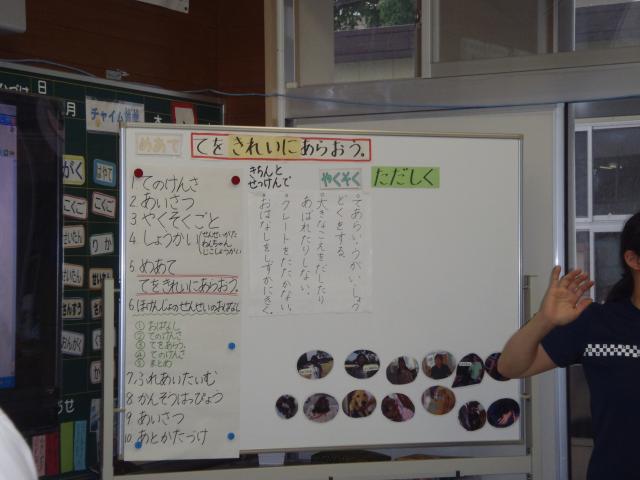 めあて
てを きれいに あらおう。
きちんと
せっけんで
やくそく
ただしく
1 てのけんさ
2 あいさつ
3 やくそくごと
4 しょうかい
せんせいがた
わんちゃん
じこしょうかい
5 めあて
てをきれいにあらおう。
6 ほけんじょのせんせいのおはなし
① おはなし
② てのけんさ
③ てをあらう。
④ てのけんさ
⑤ まとめ
7 ふれあいたいむ
8 かんそうはっぴょう
9 あいさつ
10 あとかたづけ
てあらい、うがい、しょう
どくをする。
大きなこえをだしたり
あばれたりしない。
クレートをたたかない。
おはなしをしずかにきく。
日
月
木
がく
こくご
こくご
りか